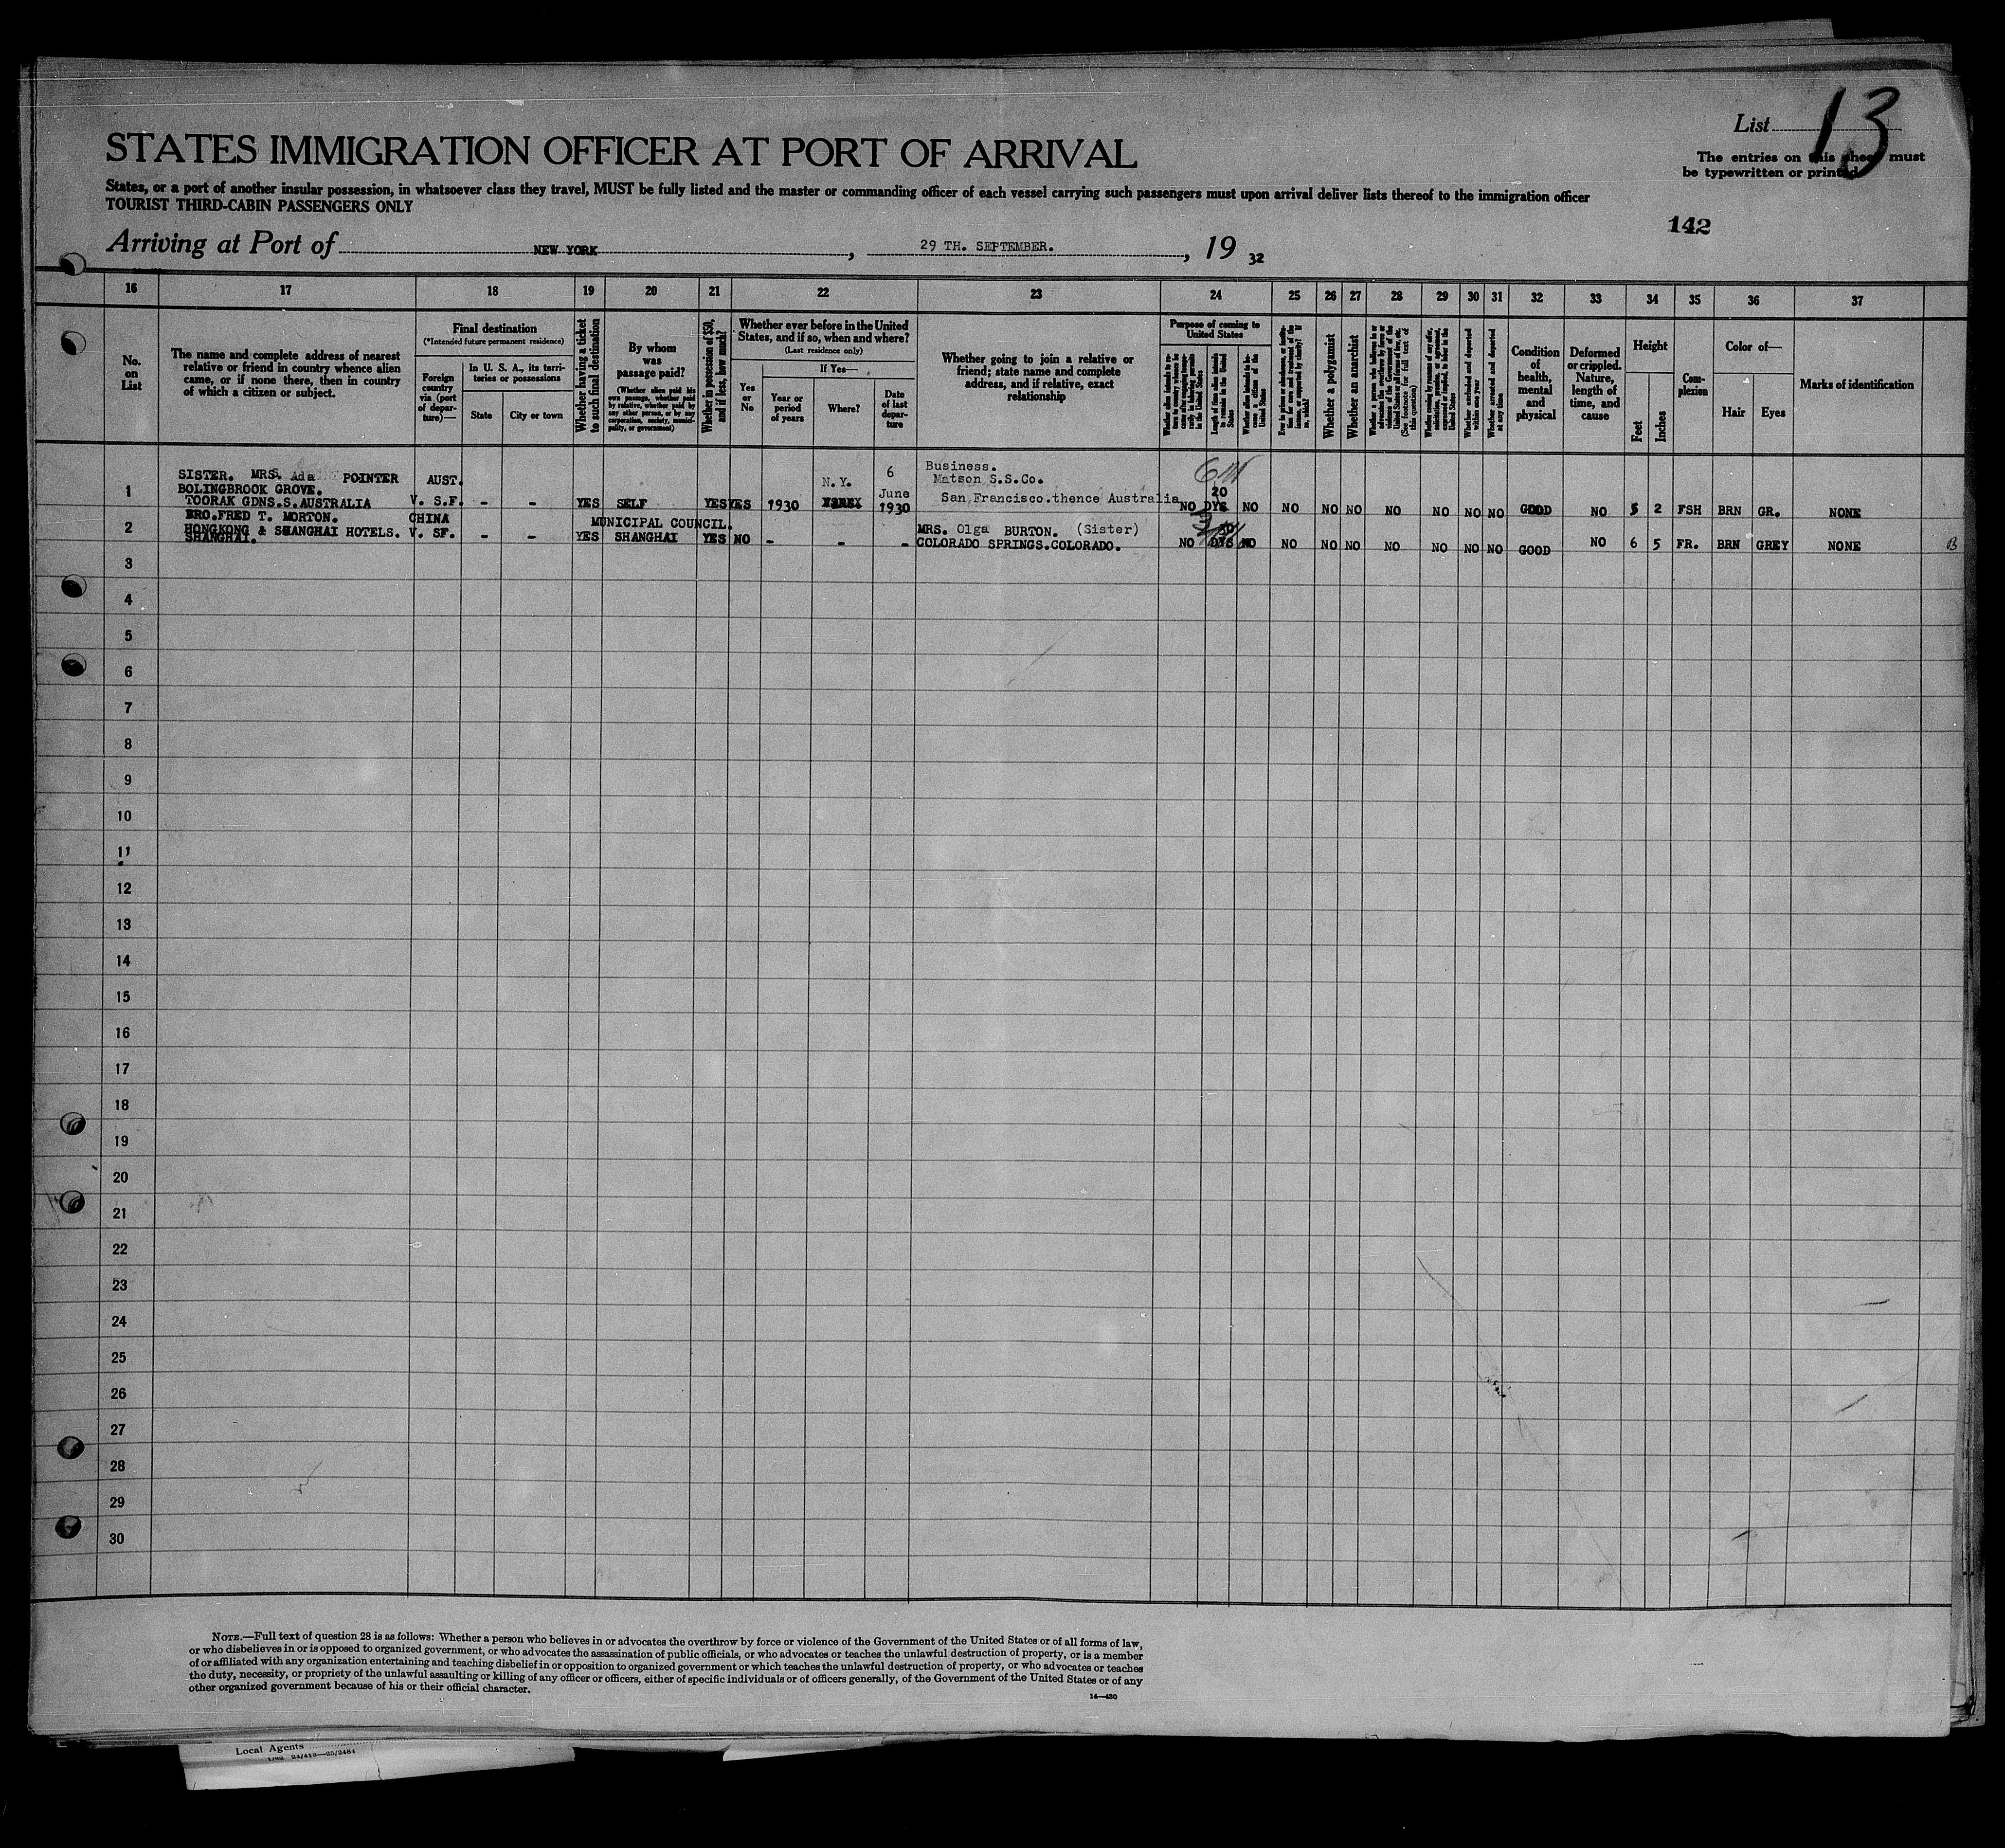 List 13
The entries on this sheet must
be typewritten or printed
STATES IMMIGRATION OFFICER AT PORT OF ARRIVAL
States, or a port of another insular possession, in whatsoever class they travel, MUST be fully listed and the master or commanding officer of each vessel carrying such passengers must upon arrival deliver lists thereof to the immigration officer
TOURIST THIRD-CABIN PASSENGERS ONLY
142
Arriving at Port of NEW YORK, 29 TH. SEPTEMBER., 19 32
16 17 18 19 20 21 22 23 24 25 26 27 28 29 30 31 32 33 34 35 36 37
No. on List
The name and complete address of nearest
relative or friend in country whence alien
came, or if none there, then in country
of which a citizen or subject.
Final destination
(*Intended future permanent residence)
Foreign country via (port of departure)—
In U. S. A., its territories or possessions
State
City or town
Whether having a ticket to such final destination
By whom was passage paid?
(Whether alien paid his own passage, whether paid by relative, whether paid by any other person, or by any corporation, society, municipality, or government)
Whether in possession of $50, and if less, how much?
Whether ever before in the United
States, and if so, when and where?
(Last residence only)
Yes or No
If Yes—
Year or period of years
Where?
Date of last departure
Whether going to join a relative or
friend; state name and complete
address, and if relative, exact
relationship
Purpose of coming to United States
Length of time alien intends to remain in the United States
Whether alien intends to become a citizen of the United States
Whether a polygamist
Whether an anarchist
(See footnote for full text of this question)
Whether excluded and deported within one year
Whether arrested and deported at any time
Condition of health, mental and physical
Deformed or crippled. Nature, length of time, and cause
Height
Feet
Inches
Complexion
Color of—
Hair
Eyes
Marks of identification
1 SISTER. MRS. Ada POINTER
BOLINGBROOK GROVE.
TOORAK GDNS.S.AUSTRALIA
AUST.
V. S.F. - - YES SELF YES YES 1930 N.Y. 6 June 1930
Business.
Matson S.S.Co.
San Francisco.thence Australia
NO 20 DYS NO NO NO NO NO NO NO NO GOOD NO 5 2 FSH BRN GR. NONE
2 BRO.FRED T. MORTON.
HONGKONG & SHANGHAI HOTELS.
SHANGHAI.
CHINA
V. SF. - - YES MUNICIPAL COUNCIL.
SHANGHAI YES NO - - -
MRS. Olga BURTON. (Sister)
COLORADO SPRINGS.COLORADO.
NO DYS NO NO NO NO NO NO NO NO GOOD NO 6 5 FR. BRN GREY NONE
3
4
5
6
7
8
9
10
11
12
13
14
15
16
17
18
19
20
21
22
23
24
25
26
27
28
29
30
NOTE.—Full text of question 28 is as follows: Whether a person who believes in or advocates the overthrow by force or violence of the Government of the United States or of all forms of law,
or who disbelieves in or is opposed to organized government, or who advocates the assassination of public officials, or who advocates or teaches the unlawful destruction of property, or is a member
of or affiliated with any organization entertaining and teaching disbelief in or opposition to organized government or which teaches the unlawful destruction of property, or who advocates or teaches
the duty, necessity, or propriety of the unlawful assaulting or killing of any officer or officers, either of specific individuals or of officers generally, of the Government of the United States or of any
other organized government because of his or their official character.
14—430
Local Agents